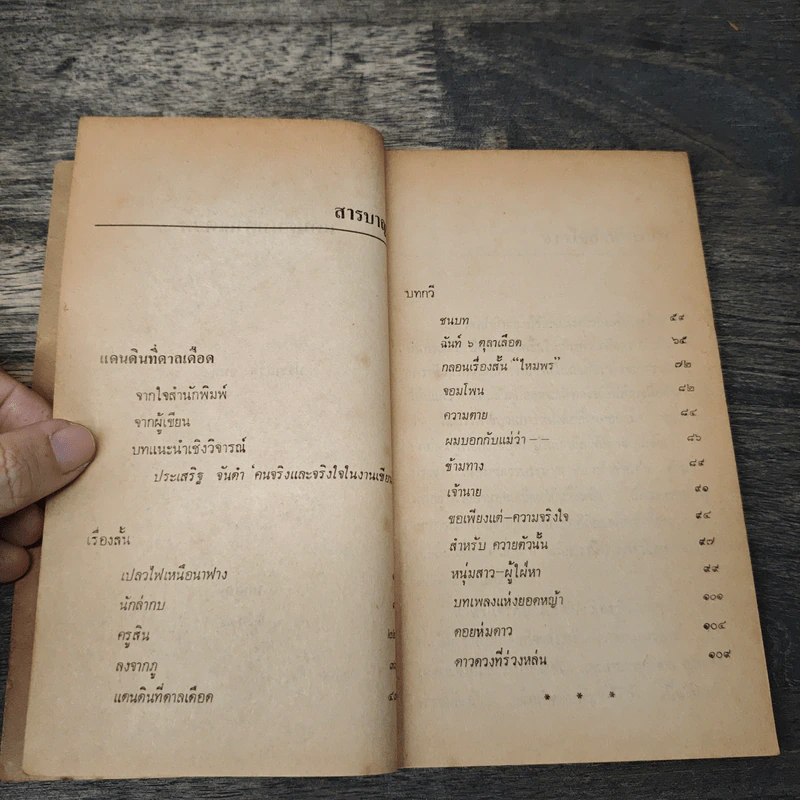 สารบาญ
แดนดินที่ดาลเดือด
จากใจสำนักพิมพ์
จากผู้เขียน
บทแนะนำเชิงวิจารณ์
ประเสริฐ จันดำ 'คนจริงและจริงใจในงานเขียน
เรื่องสั้น
เปลวไฟเหนือนาฟาง
นักล่ากบ
ครูสิน
ลงจากภู
แดนดินที่ดาลเดือด
บทกวี
ชนบท ๕๙
ฉันท์ ๖ ตุลาเลือด ๖๕
กลอนเรื่องสั้น "ไหมพร" ๗๒
จอมโพน ๘๒
ความตาย ๘๔
ผมบอกกับแม่ว่า -- ๘๖
ข้ามทาง ๘๙
เจ้านาย ๙๑
ขอเพียงแต่-ความจริงใจ ๙๔
สำหรับ ควายตัวนั้น ๙๗
หนุ่มสาว-ผู้ใฝ่หา ๙๙
บทเพลงแห่งยอดหญ้า ๑๐๑
ดอยห่มดาว ๑๐๔
ดาวดวงที่ร่วงหล่น ๑๐๙
* * *